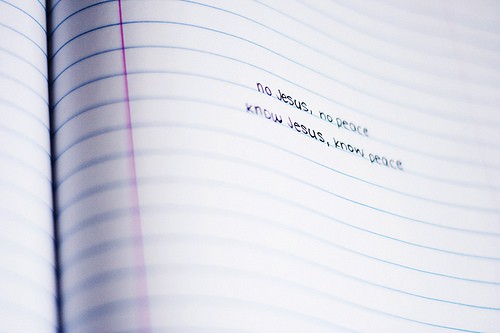 no Jesus, no peace
know Jesus, know peace